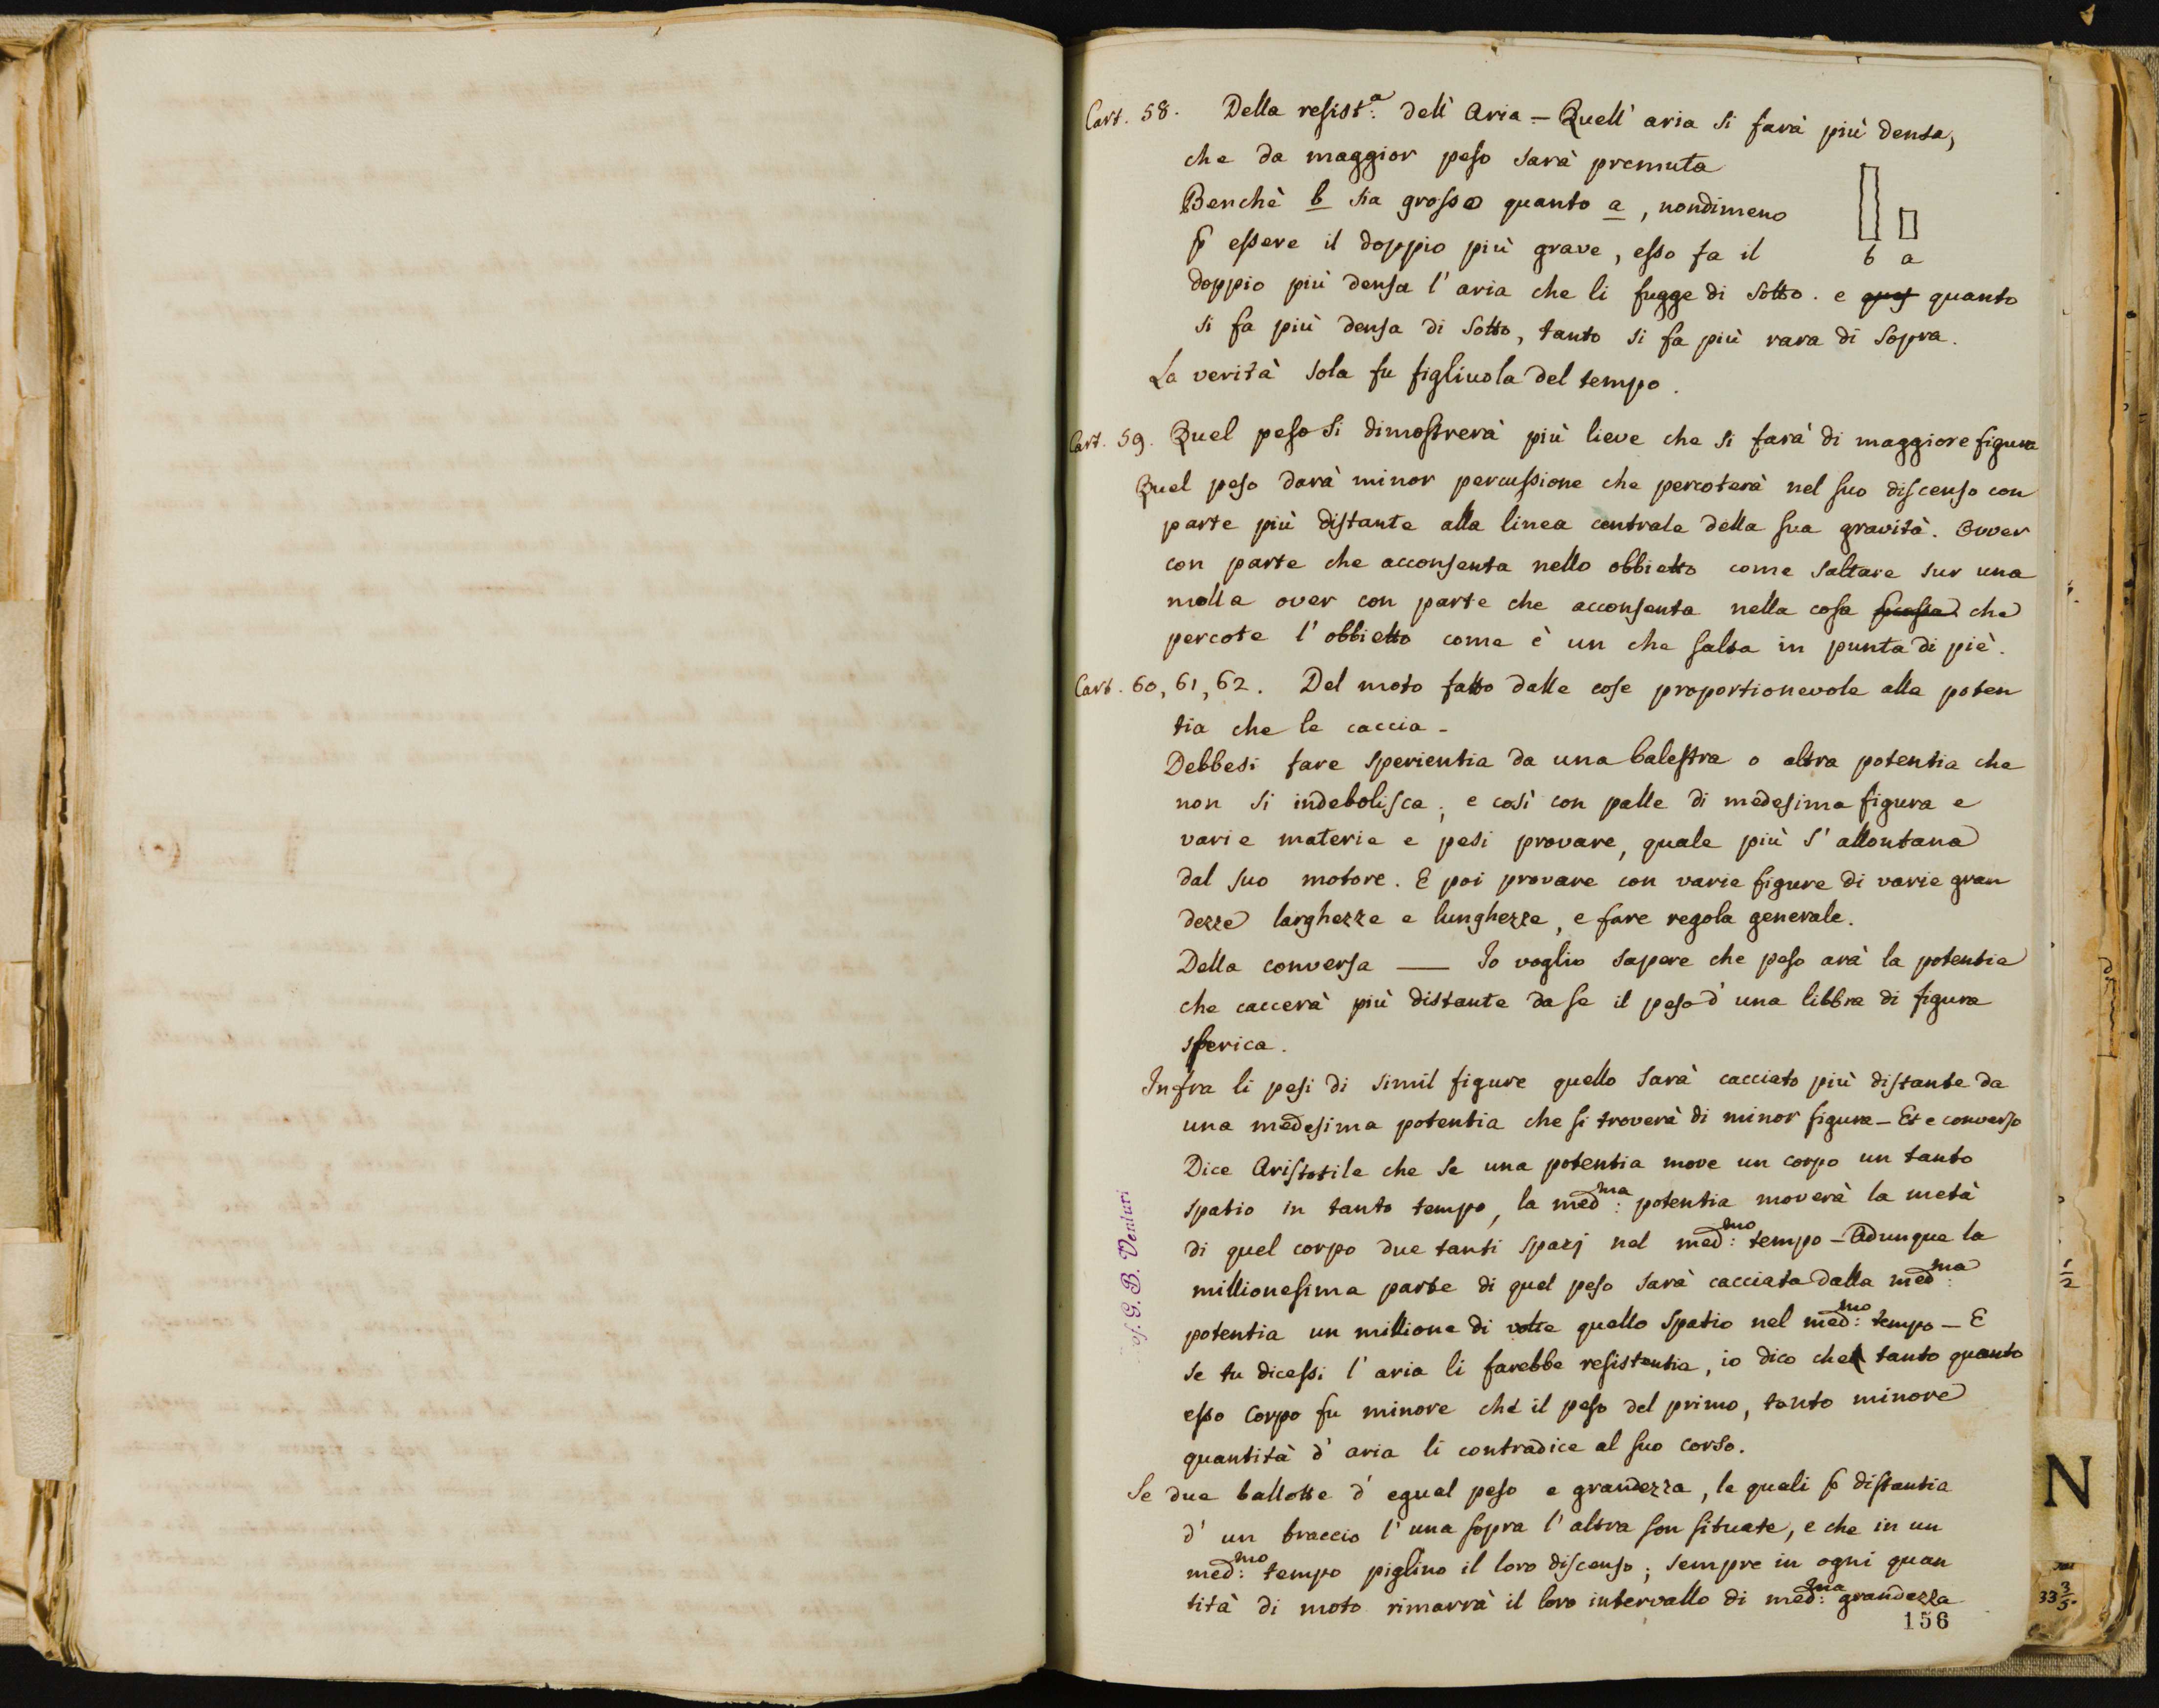 Cart. 58. Della resist.ª dell' Aria – Quell' aria si farà più densa,
che da maggior peso sarà premuta
Benchè b sia grosso quanto a, nondimeno
p essere il doppio più grave, esso fa il
b a
doppio più densa l' aria che li fugge di sotto. e ques quanto
si fa più densa di sotto, tanto si fa più rara di sopra.
La verità sola fu figliuola del tempo.
Cart. 59. Quel peso si dimostrerà più lieve che si farà di maggiore figura
Quel peso darà minor percussione che percoterà nel suo discenso con
parte più distante alla linea centrale della sua gravità. Over
con parte che acconsenta nello obbietto come saltare sur una
molla over con parte che acconsenta nella cosa che
percote l' obbietto come è un che salta in punta di piè.
Cart. 60, 61, 62. Del moto fatto dalle cose proportionevole alla poten
tia che le caccia –
Debbesi fare sperientia da una balestra o altra potentia che
non si indebolisca; e così con palle di medesima figura e
varie materie e pesi provare, quale più s' allontana
dal suo motore. E poi provare con varie figure di varie gran
dezze larghezze e lunghezze, e fare regola generale.
Della conversa — Io voglio sapere che peso arà la potentia
che caccerà più distante da se il peso d' una libbra di figura
sferica.
Infra li pesi di simil figure quello sarà cacciato più distante da
una medesima potentia che si troverà di minor figura – Et e converso
Dice Aristotile che se una potentia move un corpo un tanto
spatio in tanto tempo, la med:ma potentia moverà la metà
di quel corpo due tanti spazj nel med:mo tempo – Adunque la
millionesima parte di quel peso sarà cacciata dalla med:ma
potentia un millione di volte quello spatio nel med:mo tempo – E
se tu dicessi l' aria li farebbe resistentia, io dico che tanto quanto
esso corpo fu minore che il peso del primo, tanto minore
quantità d' aria li contradice al suo corso.
Se due ballotte d' egual peso e grandezza, le quali p distantia
d' un braccio l' una sopra l' altra son situate, e che in un
med:mo tempo piglino il loro discenso; sempre in ogni quan
tità di moto rimarrà il loro intervallo di med:ma grandezza
156
G. B. Venturi
N
1/2
33 3/5